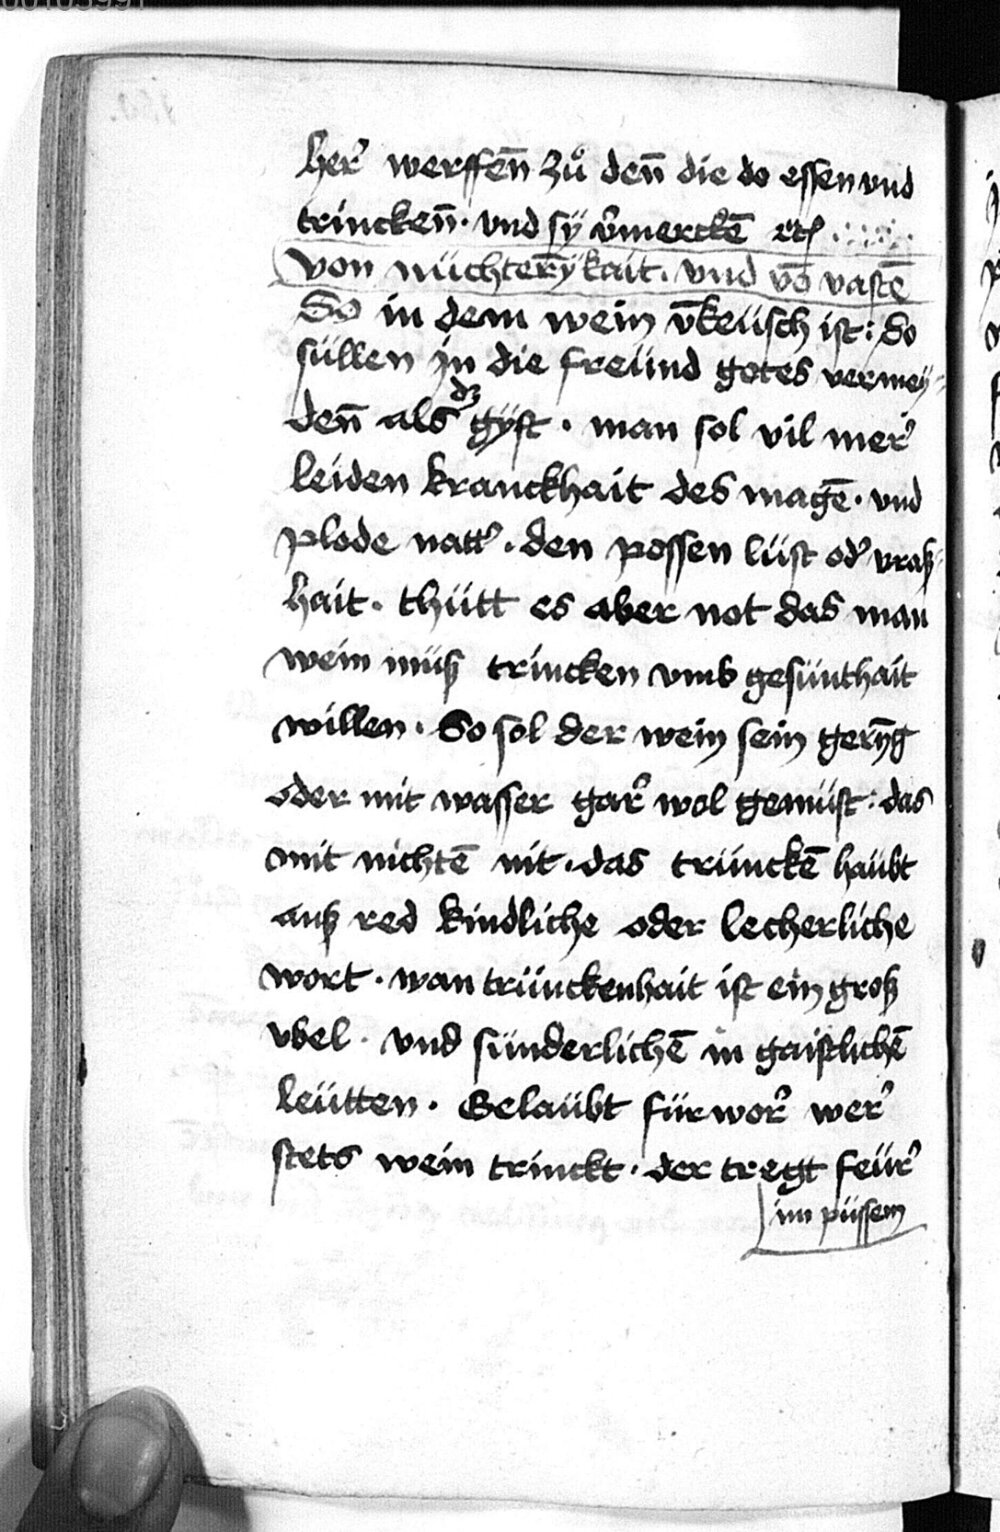 her' werffen̄ zů den̄ die do essen vnd
trincken̄. vnd sÿ v̄mercke͞ etc̃
Von nüchterȳkait. vnd vo͞ vaste͞
So in dem wein v̄keüsch ist: So
süllen jn die freünd gotes vermeÿ=
den̄ als dz gÿft. man sol vil mer'
leiden kranckhait des mage͞. vnd
plode natt'. den possen lüst od' vraß
hait. thütt es aber not das man
wein müß trincken vmb gesünthait
willen. So sol der wein sein gerȳg
oder mit wasser gar' wol gemüst: das
mit nichte͞ nit. das trüncke͞ haübt
auß red kindliche oder lecherliche
wort. wan trünckenhait ist ein groß
vbel. vnd sünderliche͞ in gaistliche͞
leütten. Gelaübt fürwor' wer'
stets wein trinckt. der tregt feür'
im püssem